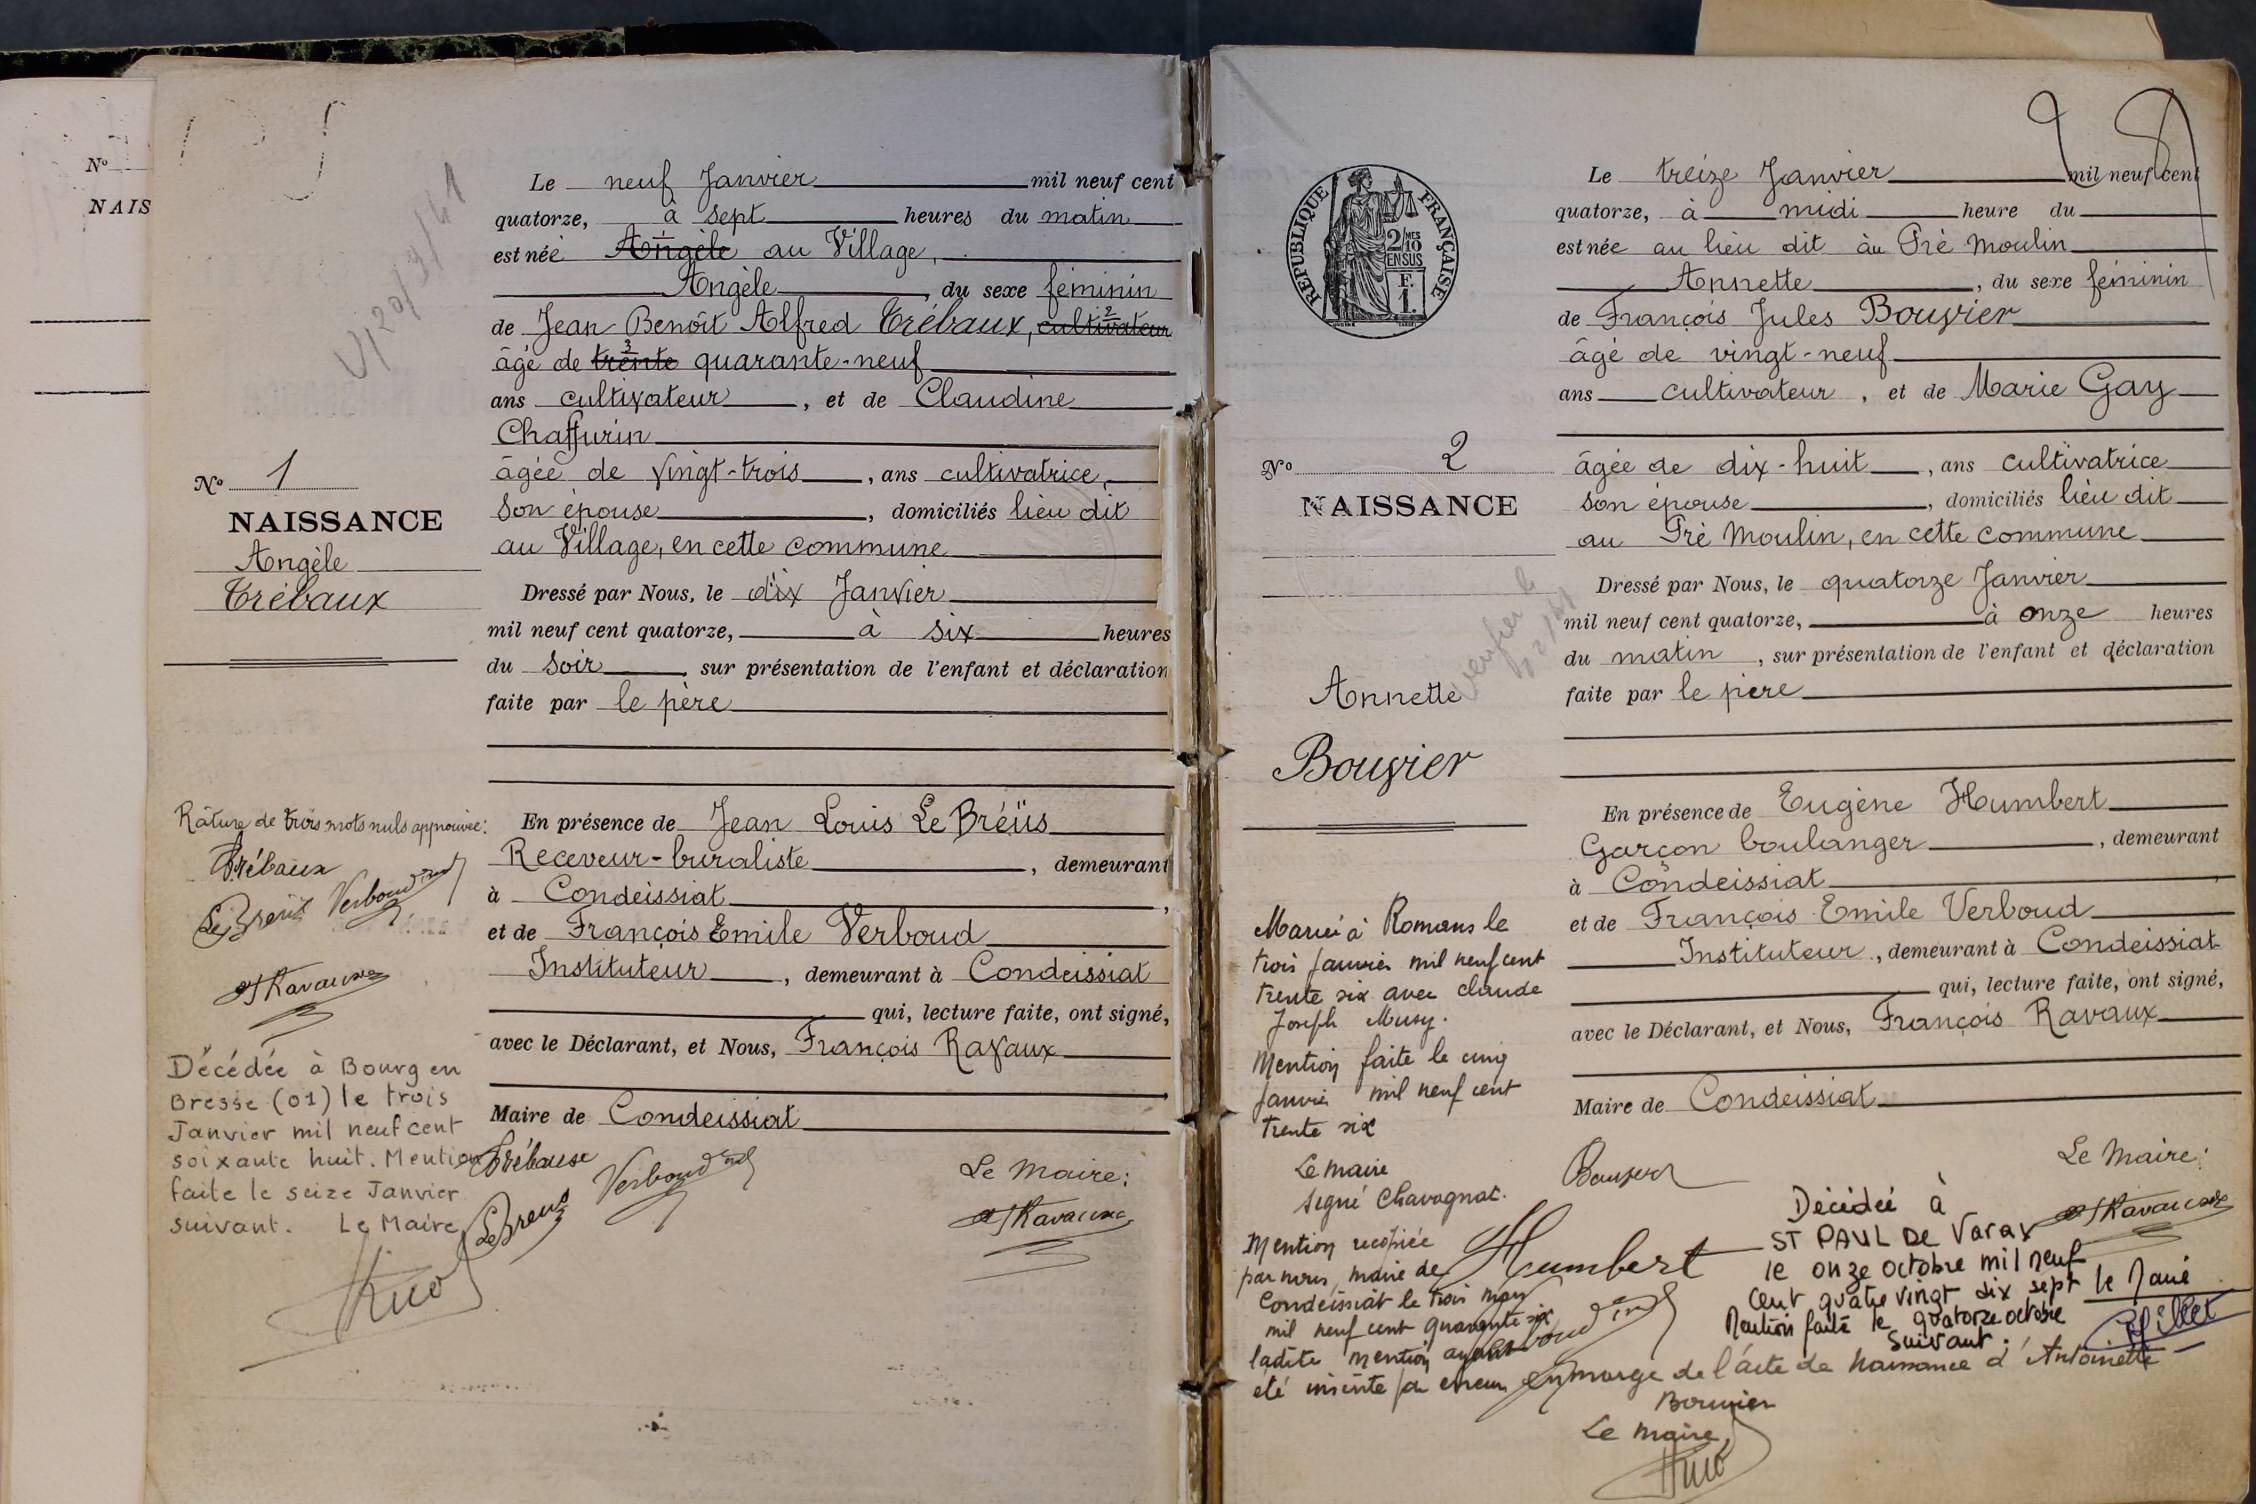 Nº
NAIS
V/20/3/41
Nº 1
NAISSANCE
Angèle
Trébaux
Le neuf Janvier mil neuf cent
quatorze, à sept heures du matin
est née Angèle au Village,
Angèle, du sexe féminin
de Jean Benoît Alfred Trébaux, cultivateur
âgé de trente quarante-neuf
ans cultivateur, et de Claudine
Chaffurin
âgée de vingt-trois, ans cultivatrice,
son épouse, domiciliés lieu dit
au Village, en cette commune
Dressé par Nous, le dix Janvier
mil neuf cent quatorze, à six heures
du soir, sur présentation de l'enfant et déclaration
faite par le père
En présence de Jean Louis Le Bréüs
Receveur-buraliste, demeurant
à Condeissiat,
et de François Emile Verboud
Instituteur, demeurant à Condeissiat
qui, lecture faite, ont signé,
avec le Déclarant, et Nous, François Ravaux
Maire de Condeissiat
Le Maire:
Trébaux Verboud
LeBreüs Ravaux
Râture de trois mots nuls approuvée:
Trébaux
LeBreüs Verboud
Ravaux
Décédée à Bourg en
Bresse (01) le trois
Janvier mil neuf cent
soixante huit. Mention
faite le seize Janvier
suivant. Le Maire
REPUBLIQUE FRANÇAISE
2/10 MES
EN SUS
F.
1.
Nº 2
NAISSANCE
Annette
Bouvier
Le treize Janvier mil neuf cent
quatorze, à midi heure du
est née au lieu dit au Pré Moulin
Annette, du sexe féminin
de François Jules Bouvier
âgé de vingt-neuf
ans cultivateur, et de Marie Gay
âgée de dix-huit, ans cultivatrice
son épouse, domiciliés lieu dit
au Pré Moulin, en cette commune
Dressé par Nous, le quatorze Janvier
mil neuf cent quatorze, à onze heures
du matin, sur présentation de l'enfant et déclaration
faite par le père
En présence de Eugène Humbert
Garçon boulanger, demeurant
à Condeissiat
et de François Emile Verboud
Instituteur, demeurant à Condeissiat
qui, lecture faite, ont signé,
avec le Déclarant, et Nous, François Ravaux
Maire de Condeissiat
Le Maire:
Bouvier
Ravaux
Humbert
Verboud
Mariée à Romans le
trois janvier mil neuf cent
trente six avec Claude
Joseph Musy.
Mention faite le cinq
janvier mil neuf cent
trente six
Le maire
signé Chavagnat.
Mention recopiée
par nous, maire de
Condeissiat le trois mars
mil neuf cent quarante six
ladite mention ayant
été inserite par erreur en marge de l'acte de naissance d'Antoinette
Bouvier
Le maire,
Décédée à
ST PAUL DE Varax
le onze octobre mil neuf
cent quatre vingt dix sept
Mention faite le quatorze octobre
suivant.